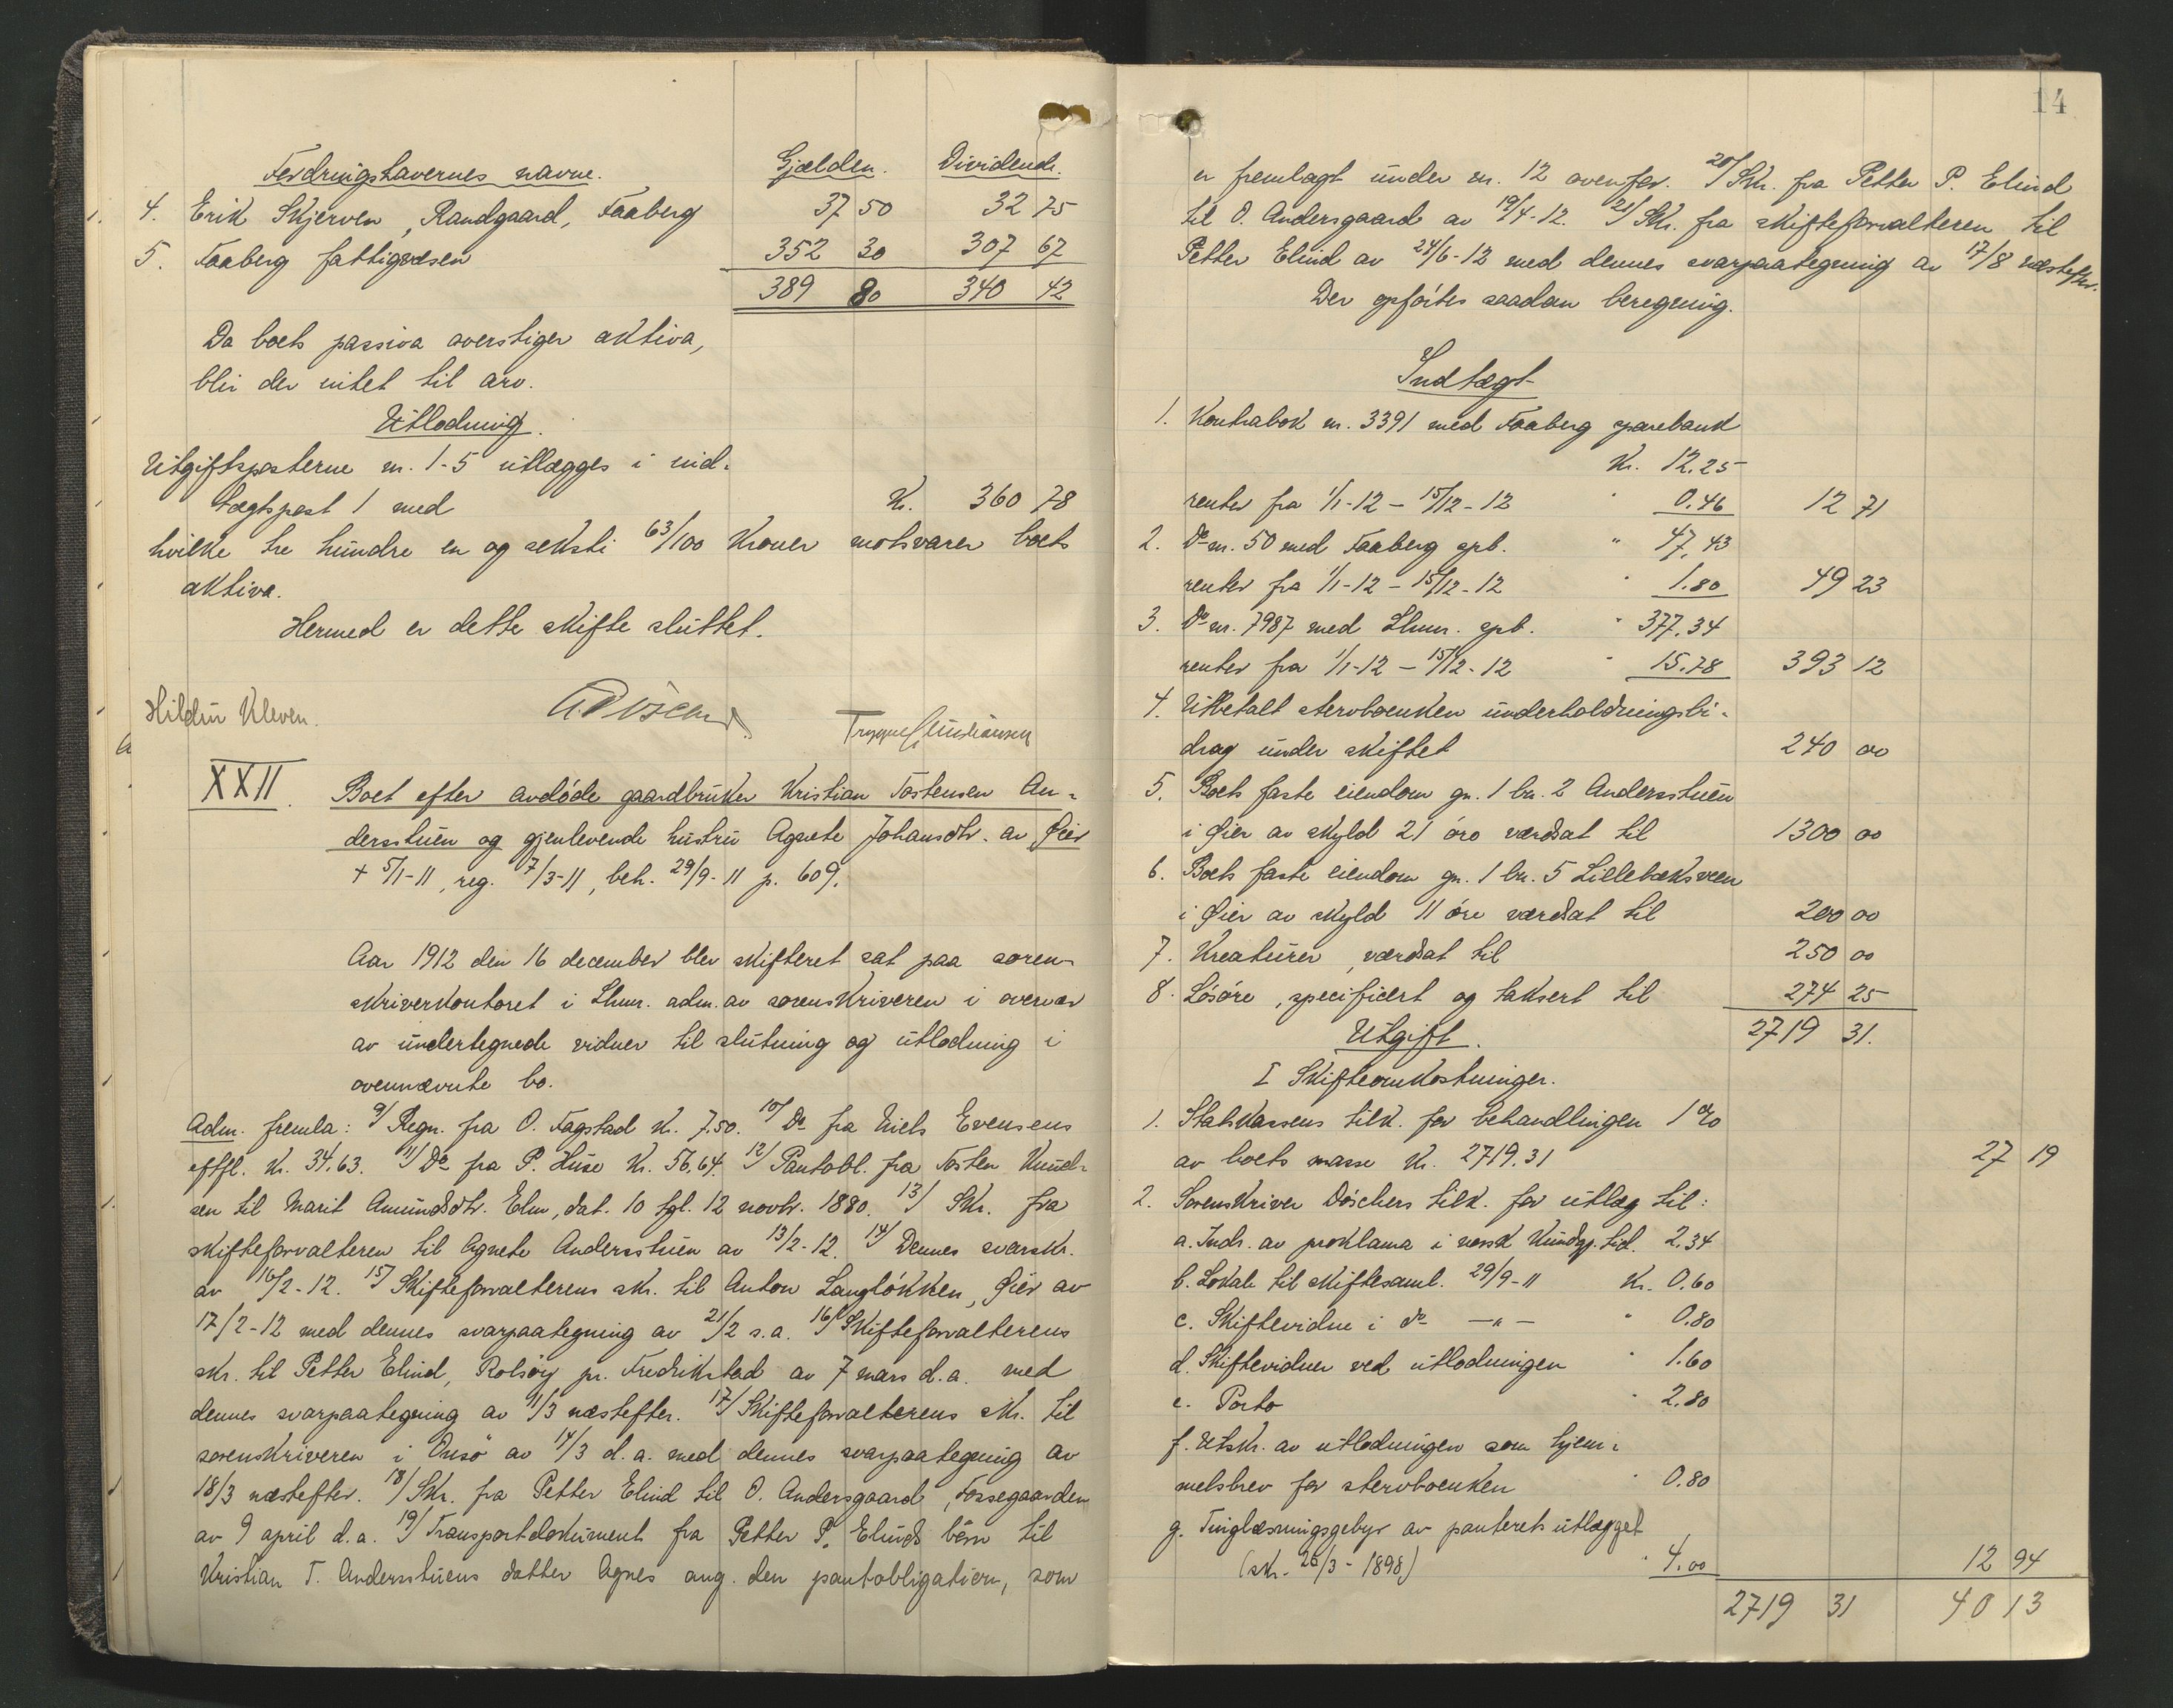 Fordringshavernes navne. Gjælden. Dividende.
4. Erik Skjerven, Randgaard, Faaberg 37 50 32 75
5. Faaberg fattigvæsen 352 30 307 67
389 80 340 42
Da boets passiva overstiger aktiva,
blir der intet til arv.
Utlodning.
Utgiftsposterne nr. 1-5 utlægges i ind-
tægtspost 1 med Kr. 360 78
hvilke tre hundre en og seksti 63/100 Kroner motsvarer boets
aktiva.
Hermed er dette skifte sluttet.
Hildur Kleven.
Trygve Christiansen
XXII. Boet efter avdöde gaardbruker Kristian Tostensen An-
dersstuen og gjenlevende hustru Agnete Johansdtr. av Øier
+ 5/1-11, reg. 7/3-11, beh. 29/9-11 p. 609.
Aar 1912 den 16 december blev skifteret sat paa soren-
skriverkontoret i Lhmr. adm. av sorenskriveren i overvær
av undertegnede vidner til slutning og utlodning i
ovennævnte bo.
Adm. fremla: 9/ Regn. fra O. Fagstad kr. 7.50. 10/ Do fra Niels Evensens
eftfl. Kr. 34.63. 11/ Do fra P. Huse Kr. 56.64. 12/ Pantobl. fra Tosten Knud-
sen til Marit Amundsdtr. Elm, dat. 10 tgl. 12 novbr. 1880. 13/ Skr. fra
skifteforvalteren til Agnete Andersstuen av 13/2-12. 14/ Dennes svarskr.
av 16/2-12. 15/ Skifteforvalterens skr. til Anton Langlökken, Øier av
17/2-12 med dennes svarpaategning av 21/2 s.a. 16/ Skifteforvalterens
skr. til Petter Elind, Rolsöy pr. Fredrikstad av 7 mars d.a. med
dennes svarpaategning av 11/3 næstefter. 17/ Skifteforvalterens skr. til
sorenskriveren i Onsö av 14/3 d.a. med dennes svarpaategning av
18/3 næstefter. 18/ Skr. fra Petter Elind til O. Andersgaard, Fossegaarden
av 9 april d.a. 19/ Transportdokument fra Petter P. Elinds börn til
Kristian T. Andersstuens datter Agnes ang. den pantobligation, som
14
er fremlagt under nr. 12 ovenfor. 20/ Skr. fra Petter P. Elind
til O. Andersgaard av 19/4-12. 21/ Skr. fra skifteforvalteren til
Petter Elind av 24/6-12 med dennes svarpaategning av 17/8 næstefter.
Der opförtes saadan beregning.
Indtægt
1. Kontrabok nr. 3391 med Faaberg sparebank
Kr. 12.25
renter fra 1/1-12 - 15/12-12 " 0.46 12 71
2. Do nr. 50 med Faaberg spb. " 47,43
renter fra 1/1-12 - 15/12-12 " 1.80 49 23
3. Do nr. 7987 med Lhmr. spb. " 377.34
renter fra 1/1-12 - 15/12-12 " 15.78 393 12
4. Utbetalt stervboenken underholdningsbi-
drag under skiftet 240 00
5. Boets faste eiendom gn. 1 bn. 2 Andersstuen
i Øier av skyld 21 öre værdsat til 1300 00
6. Boets faste eiendom gn. 1 bn. 5 Lillebæksveen
i Øier av skyld 11 öre værdsat til 200 00
7. Kreaturer, værdsat til 250 00
8. Lösöre, specificert og taksert til 274 25
Utgift. 2719 31.
I Skifteomkostninger.
1. Statskassens tilk. for behandlingen 1 %
av boets masse Kr. 2719.31 27 19
2. Sorenskriver Döschers tilk. for utlæg til:
a. Indr. av proklama i norsk Kundgj. tid. 2.34
b. Lokale til skiftesaml. 29/9-11 Kr. 0.60
c. Skiftevidne i do -"- " 0.80
d. Skiftevidner ved utlodningen " 1.60
e. Porto " 2.80
f. Utskr. av utlodningen som hjem-
melsbrev for stervboenken " 0.80
g. Tinglæsningsgebyr av panterets utlægget
(skr. 26/3-1898) " 4.00 12 94
2719 31 40 13